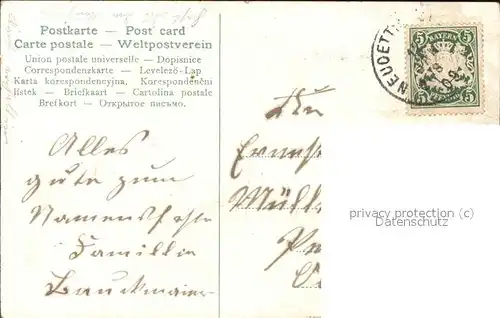 Postkarte — Post card
Carte postale — Weltpostverein
Union postale universelle — Dopisnice
Correspondenzkarte — Levelező-Lap
Karta korespondencyjna. Korespondenční
lístek — Briefkaart — Cartolina postale
Brefkort — Открытое письмо.
Alles
gute zum
Namensfeste
Familie
Bauckmaier
An
Müll
NEUOETT
BAYERN
5 5
5 5
privacy protection (c)
Datenschutz (c)